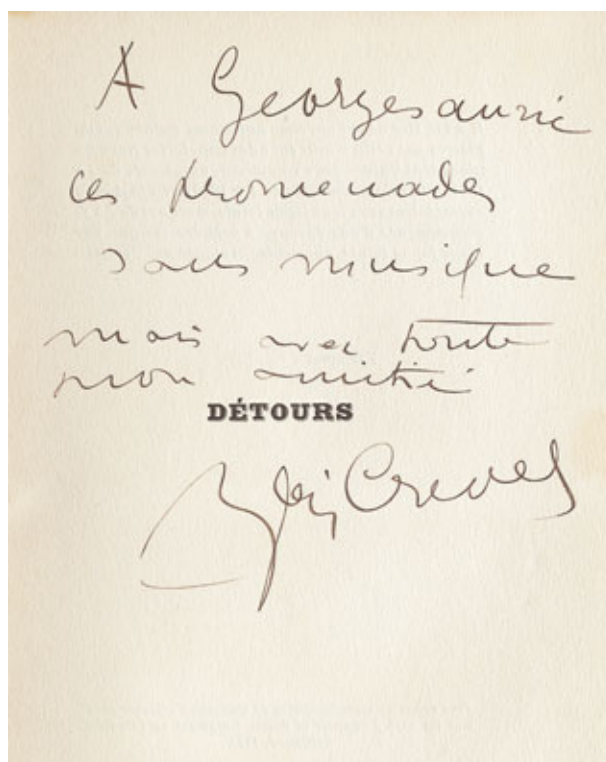 A Georges auric
ces promenades
sans musique
mais avec toute
mon amitié
DÉTOURS
René Crevel